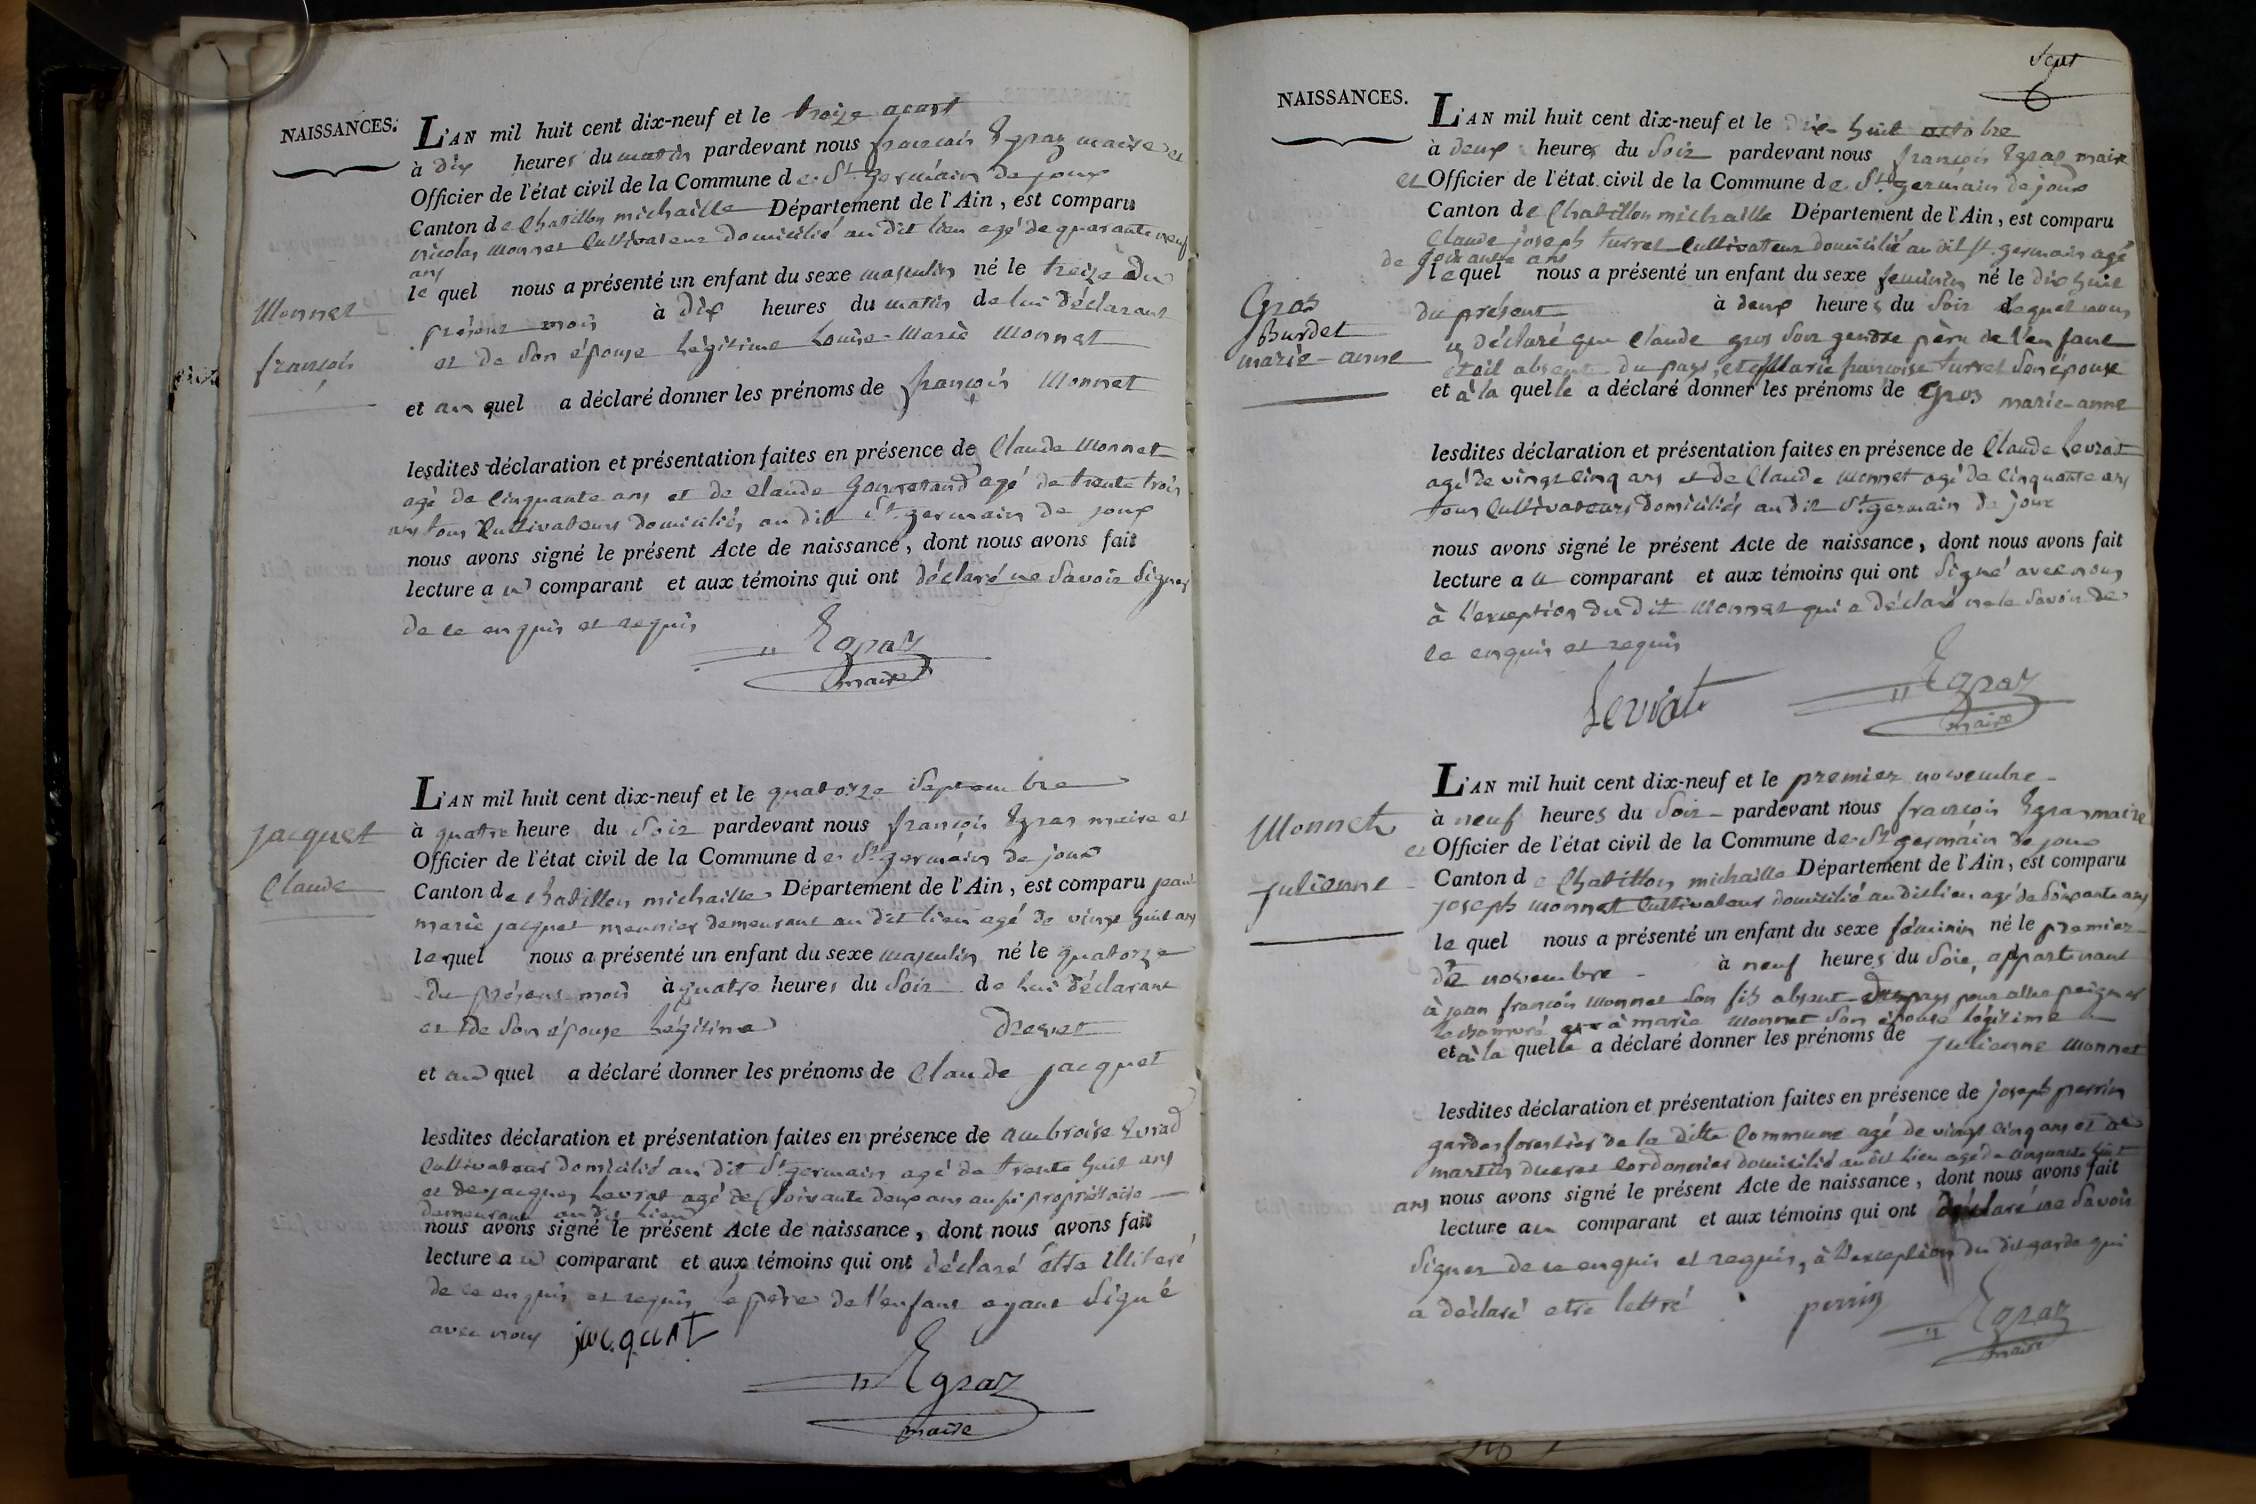 NAISSANCES.
L'AN mil huit cent dix-neuf et le treize aoust
à dix heures du matin pardevant nous françois Egraz maire et
Officier de l'état civil de la Commune de St germain de joux
Canton de Chatillon michaille Département de l'Ain, est comparu
nicolas Monnet Cultivateur domicilié au dit lieu agé de quarante neuf
ans
le quel nous a présenté un enfant du sexe masculin né le treize du
présent mois à dix heures du matin de lui déclarant
et de son épouse légitime Louise-Marie Monnet
et au quel a déclaré donner les prénoms de françois Monnet
Monnet
françois
lesdites déclaration et présentation faites en présence de Claude Monnet
agé de Cinquante ans et de Claude agé de trente trois
ans tous Cultivateurs domiciliés au dit St germain de joux
nous avons signé le présent Acte de naissance, dont nous avons fait
lecture au comparant et aux témoins qui ont déclaré ne savoir signer
de ce enquis et requis
Egraz
maire
L'AN mil huit cent dix-neuf et le quatorze Septembre
à quatre heure du Soir pardevant nous françois Egraz maire et
Officier de l'état civil de la Commune de St germain de joux
Canton de Chatillon michaille Département de l'Ain, est comparu jean
marie jacquet meunier demeurant au dit lieu agé de vingt huit ans
le quel nous a présenté un enfant du sexe masculin né le quatorze
du présent mois à quatre heures du Soir de lui déclarant
et de son épouse légitime
et au quel a déclaré donner les prénoms de Claude jacquet
jacquet
Claude
lesdites déclaration et présentation faites en présence de ambroise
Cultivateur domicilié au dit St germain agé de trente huit ans
et de jacques Levrat agé de Soixante deux ans aussi propriétaire
demeurant au dit lieu
nous avons signé le présent Acte de naissance, dont nous avons fait
lecture au comparant et aux témoins qui ont déclaré être illiteré
de ce enquis et requis le père de l'enfant ayant Signé
avec nous jacquet
Egraz
maire
Sept
6
NAISSANCES.
L'AN mil huit cent dix-neuf et le dix-huit octobre
à deux heures du Soir pardevant nous françois Egraz maire
et Officier de l'état civil de la Commune de St germain de joux
Canton de Chatillon michaille Département de l'Ain, est comparu
Claude joseph turret Cultivateur domicilié au dit St. germain agé
de soixante ans
lequel nous a présenté un enfant du sexe feminin né le dix huit
du présent à deux heures du Soir lequel nous
a déclaré que Claude gros Son gendre père de l'enfant
était absent du pays, et Marie françoise turret Son épouse
et à la quelle a déclaré donner les prénoms de Gros marie-anne
Gros
Burdet
marie-anne
lesdites déclaration et présentation faites en présence de Claude Levrat
agé de vingt cinq ans et de Claude Monnet agé de Cinquante ans
tous Cultivateurs domiciliés au dit St germain de joux
nous avons signé le présent Acte de naissance, dont nous avons fait
lecture au comparant et aux témoins qui ont Signé avec nous
à l'exception du dit Monnet qui a déclaré ne le Savoir de
ce enquis et requis
Levrat
Egraz
maire
L'AN mil huit cent dix-neuf et le premier novembre
à neuf heures du Soir pardevant nous françois Egraz maire
et Officier de l'état civil de la Commune de St germain de joux
Canton de Chatillon michaille Département de l'Ain, est comparu
joseph Monnet Cultivateur domicilié au dit lieu agé de Soixante ans
le quel nous a présenté un enfant du sexe féminin né le premier
dit novembre à neuf heures du Soir, appartenant
à jean françois Monnet Son fils absent du pays pour aller peigner
le chanvre et à marie Monnet Son épouse légitime
et à la quelle a déclaré donner les prénoms de julienne Monnet
Monnet
julienne
lesdites déclaration et présentation faites en présence de joseph perrin
garde forestier de la ditte Commune agé de vingt cinq ans et de
martin ducret Cordonnier domicilié au dit lieu agé de cinquante huit
ans nous avons signé le présent Acte de naissance, dont nous avons fait
lecture au comparant et aux témoins qui ont déclaré ne Savoir
Signer de ce enquis et requis, à l'exception du dit garde qui
a déclaré etre lettré perrin
Egraz
maire